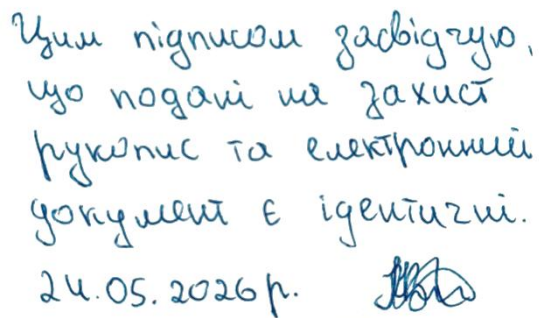 Цим підписом засвідчую,
що подані на захист
рукопис та електронний
документ є ідентичні.
24.05.2026 р.